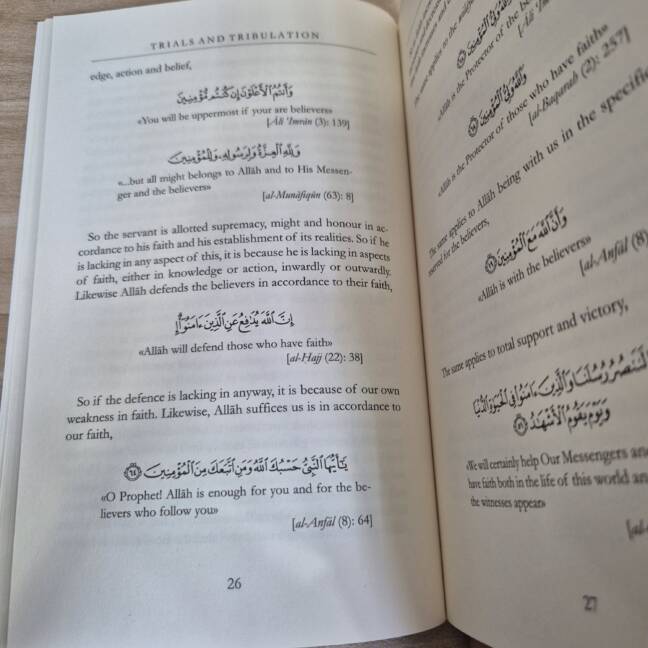 TRIALS AND TRIBULATION
edge, action and belief,
وَأَنتُمُ ٱلْأَعْلَوْنَ إِن كُنتُم مُّؤْمِنِينَ
«You will be uppermost if your are believers»
[Āli ʿImrān (3): 139]
وَلِلَّهِ ٱلْعِزَّةُ وَلِرَسُولِهِۦ وَلِلْمُؤْمِنِينَ
«...but all might belongs to Allāh and to His Messen-
ger and the believers»
[al-Munāfiqūn (63): 8]
So the servant is allotted supremacy, might and honour in ac-
cordance to his faith and his establishment of its realities. So if he
is lacking in any aspect of this, it is because he is lacking in aspects
of faith, either in knowledge or action, inwardly or outwardly.
Likewise Allāh defends the believers in accordance to their faith,
إِنَّ ٱللَّهَ يُدَٰفِعُ عَنِ ٱلَّذِينَ ءَامَنُوٓا۟
«Allāh will defend those who have faith»
[al-Ḥajj (22): 38]
So if the defence is lacking in anyway, it is because of our own
weakness in faith. Likewise, Allāh suffices us is in accordance to
our faith,
يَٰٓأَيُّهَا ٱلنَّبِىُّ حَسْبُكَ ٱللَّهُ وَمَنِ ٱتَّبَعَكَ مِنَ ٱلْمُؤْمِنِينَ ٦٤
«O Prophet! Allāh is enough for you and for the be-
lievers who follow you»
[al-Anfāl (8): 64]
26
The same applies to the
وَٱللَّهُ وَلِىُّ ٱلْمُؤْمِنِينَ
«Allāh is the Protector of the be
[Āli ʿImrā
ٱللَّهُ وَلِىُّ ٱلَّذِينَ ءَامَنُوا۟
«Allāh is the Protector of those who have faith»
[al-Baqarah (2): 257]
The same applies to Allāh being with us in the specific
reserved for the believers,
وَأَنَّ ٱللَّهَ مَعَ ٱلْمُؤْمِنِينَ ١٩
«Allāh is with the believers»
[al-Anfāl (8)
The same applies to total support and victory,
لَنَنصُرُ رُسُلَنَا وَٱلَّذِينَ ءَامَنُوا۟ فِى ٱلْحَيَوٰةِ ٱلدُّنْيَا
وَيَوْمَ يَقُومُ ٱلْأَشْهَٰدُ ٥١
«We will certainly help Our Messengers and
have faith both in the life of this world an
the witnesses appear»
27